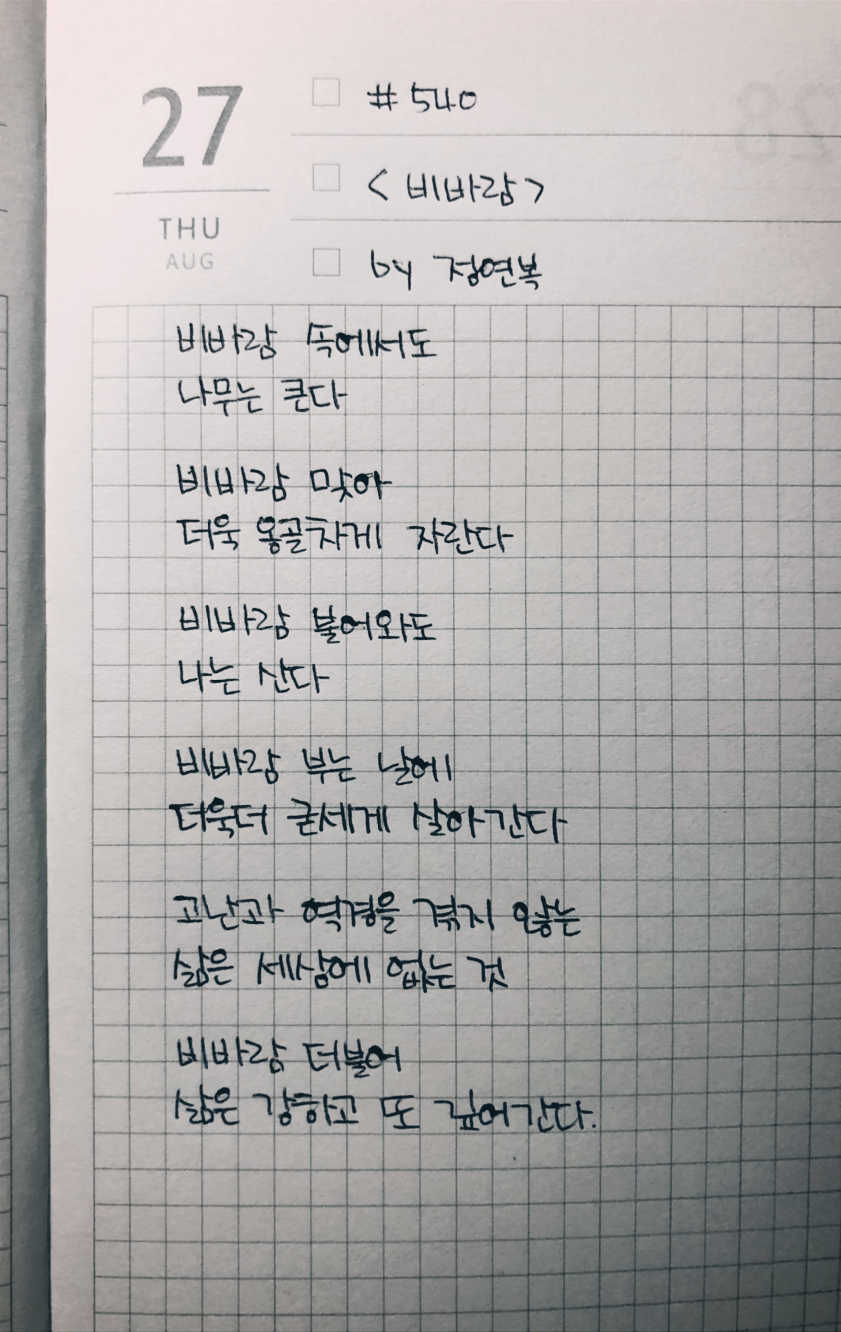 27
THU
AUG
# 540
< 비바람 >
by 정연복
비바람 속에서도
나무는 큰다
비바람 맞아
더욱 옹골차게 자란다
비바람 불어와도
나는 산다
비바람 부는 날에
더욱더 굳세게 살아간다
고난과 역경을 겪지 않는
삶은 세상에 없는 것
비바람 더불어
삶은 강하고 또 깊어간다.
28